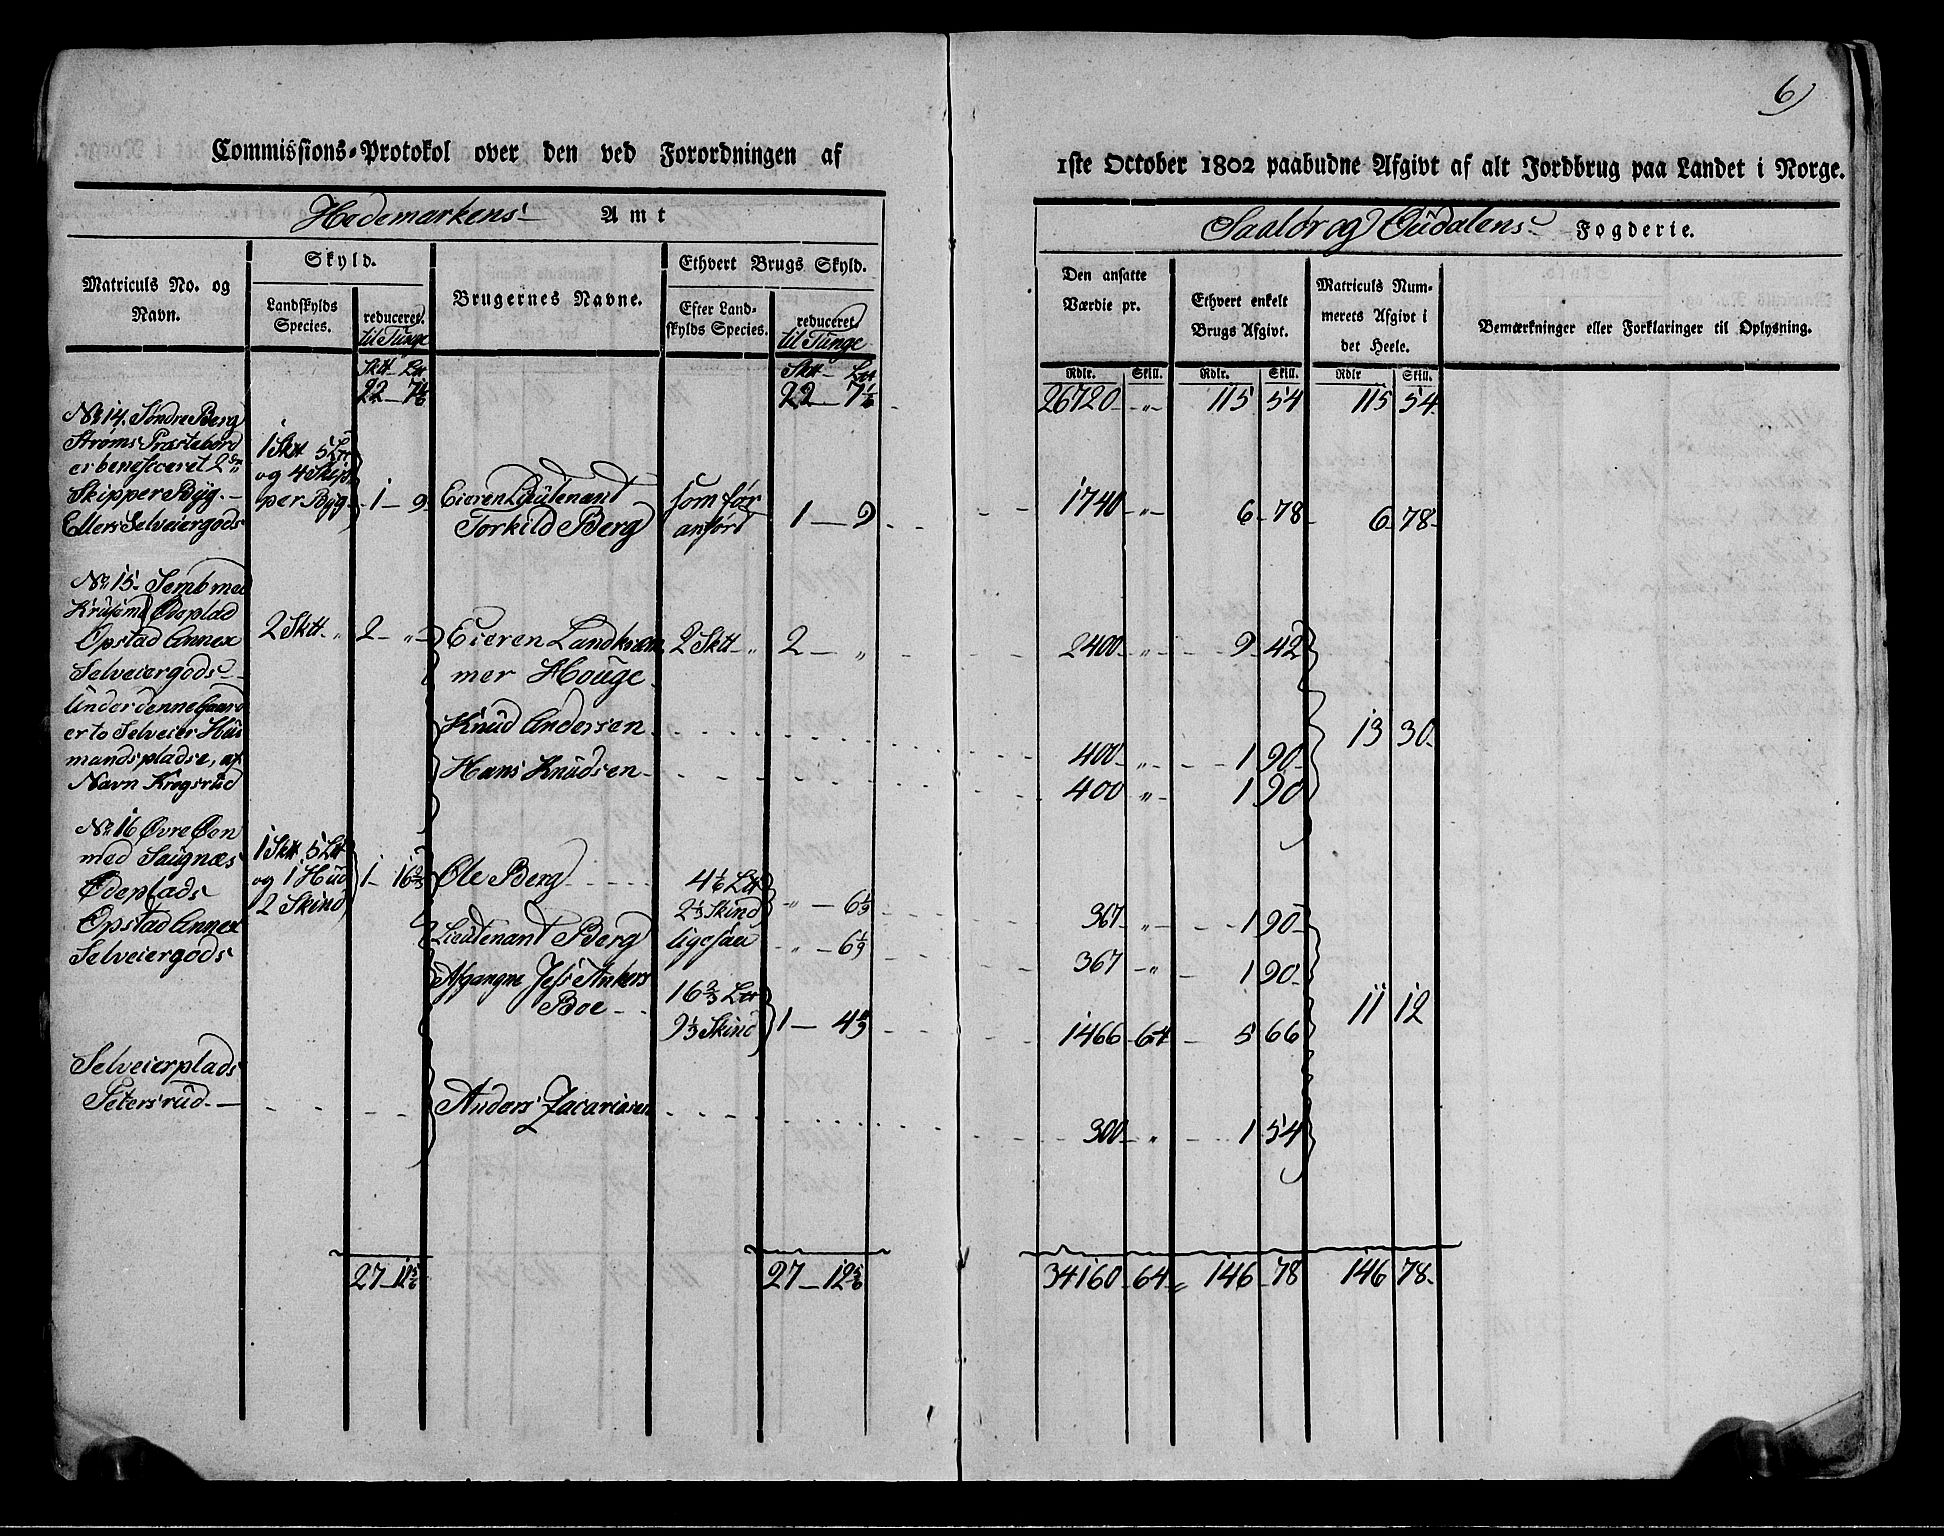 6)
Commissions-Protokol over den ved Forordningen af
1ste October 1802 paabudne Afgivt af alt Jordbrug paa Landet i Norge.
Hedemarkens Amt
Saalør og Oudalens Fogderie.
Matriculs No. og Navn.
Skyld.
Landskylds Species.
reduceret til Tunge
Brugernes Navne.
Ethvert Brugs Skyld.
Efter Landskylds Species.
reduceret til Tunge
Den ansatte Værdie pr.
Ethvert enkelt Brugs Afgivt.
Matriculs Nummerets Afgivt i det Heele.
Bemærkninger eller Forklaringer til Oplysning.
Sktt - Ltt
Sktt - Ltt
Rdlr. Skill. Rdlr. Skill. Rdlr Skill.
22 - 7 1/6 22 - 7 1/6 26720 - „ - 115 54 115 54
No. 14. Søndre Berg
Strøms Præstebord
er beneficeret 2de
Skipper Byg. -
Ellers Selveiergods
1 Sktt 5 Ltt
og 4 Skip
per Byg
1 - 9
Eieren Lieutenant
Torkild Berg
som før
anført
1 - 9
1740 - „ - 6 - 78 - 6 78 -
No. 15. Semb med
Ødeplad
Opstad Annex
Selveiergods
under denne Gaard
er to Selveier Huu
mandspladse, af
Navn Krogsrud
2 Sktt - „ 2 - „ -
Eieren Landkram
mer Houge
2 Sktt - „ 2 - „
2400 - „ - 9 - 42
Knud Andersen
13 30 -
400 - „ - 1 90 -
Hans Knudsen
400 „ - 1 90
No. 16 Øvre Øen
med Saugnæs
Ødeplads
Opstad Annex
Selveiergods
1 Sktt 5 Ltt
og 1 Hud
2 Skind
1 - 16 2/3
Ole Berg
4 1/6 Ltt
2 1/3 Skind
„ - 6 1/9
367 „ - 1 90 -
Lieutenant Berg
ligesaa
„ - 6 1/9
367 - „ - 1 90 -
Afgangne Jess Ankers
Boe
16 2/3 Ltt
9 1/3 Skind
1 - 4 4/9
1466 - 64 - 5 66
11 12
Selveierplads
Petersrud
Anders Zacariasen
300 - „ - 1 - 54
27 - 12 5/6 27 - 12 5/6 34160 - 64 - 146 - 78 146 78 -